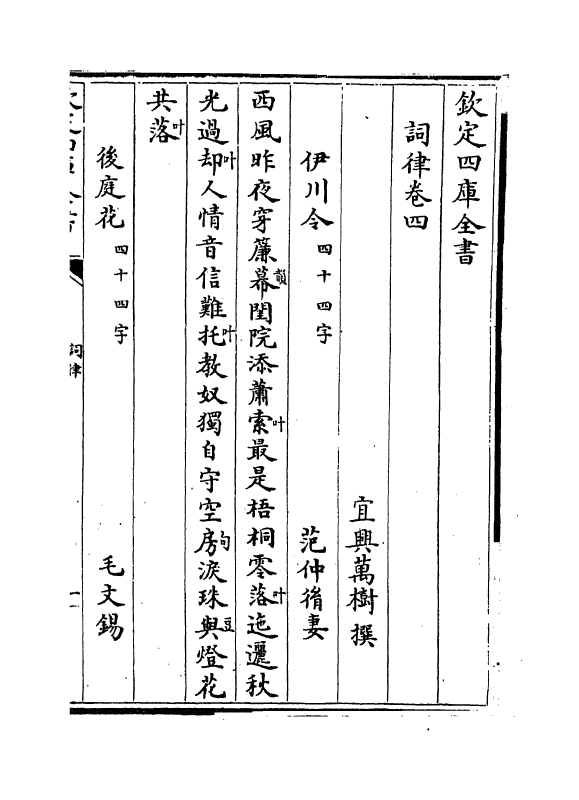 欽定四庫全書
詞律卷四
宜興萬樹撰
伊川令四十四字 范仲胤妻
西風昨夜穿簾幕韻閨院添蕭索叶最是梧桐零落叶迤邐秋
光過却叶人情音信難托叶教奴獨自守空房句淚珠與豆燈花
共落叶
後庭花四十四字 毛文錫
詞律